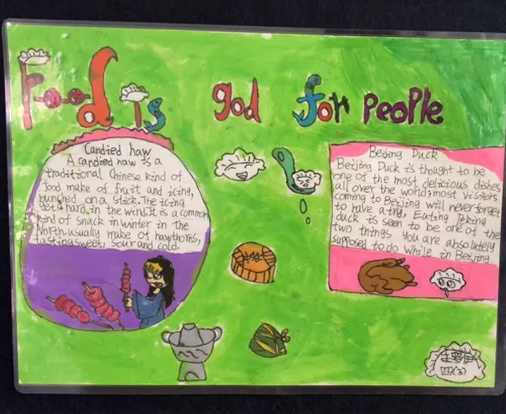 Food is god for PEOPLE
Candied haw
A candied haw is a
traditional Chinese kind of
food make of fruit and icing,
punched on a stick. The icing
hard in the wind. It is a common
kind of snack in winter in the
North usually make of hawthorns,
tasting sweet, sour and cold.
Beijing Duck
Beijing Duck is thought to be
one of the most delicious dishes
all over the world. most visitors
coming to Beijing will never forget
to have a try, Eating Peking
duck is seen to be one of the
two things you are absolutely
supposed to do while in Beijing.
四(3)